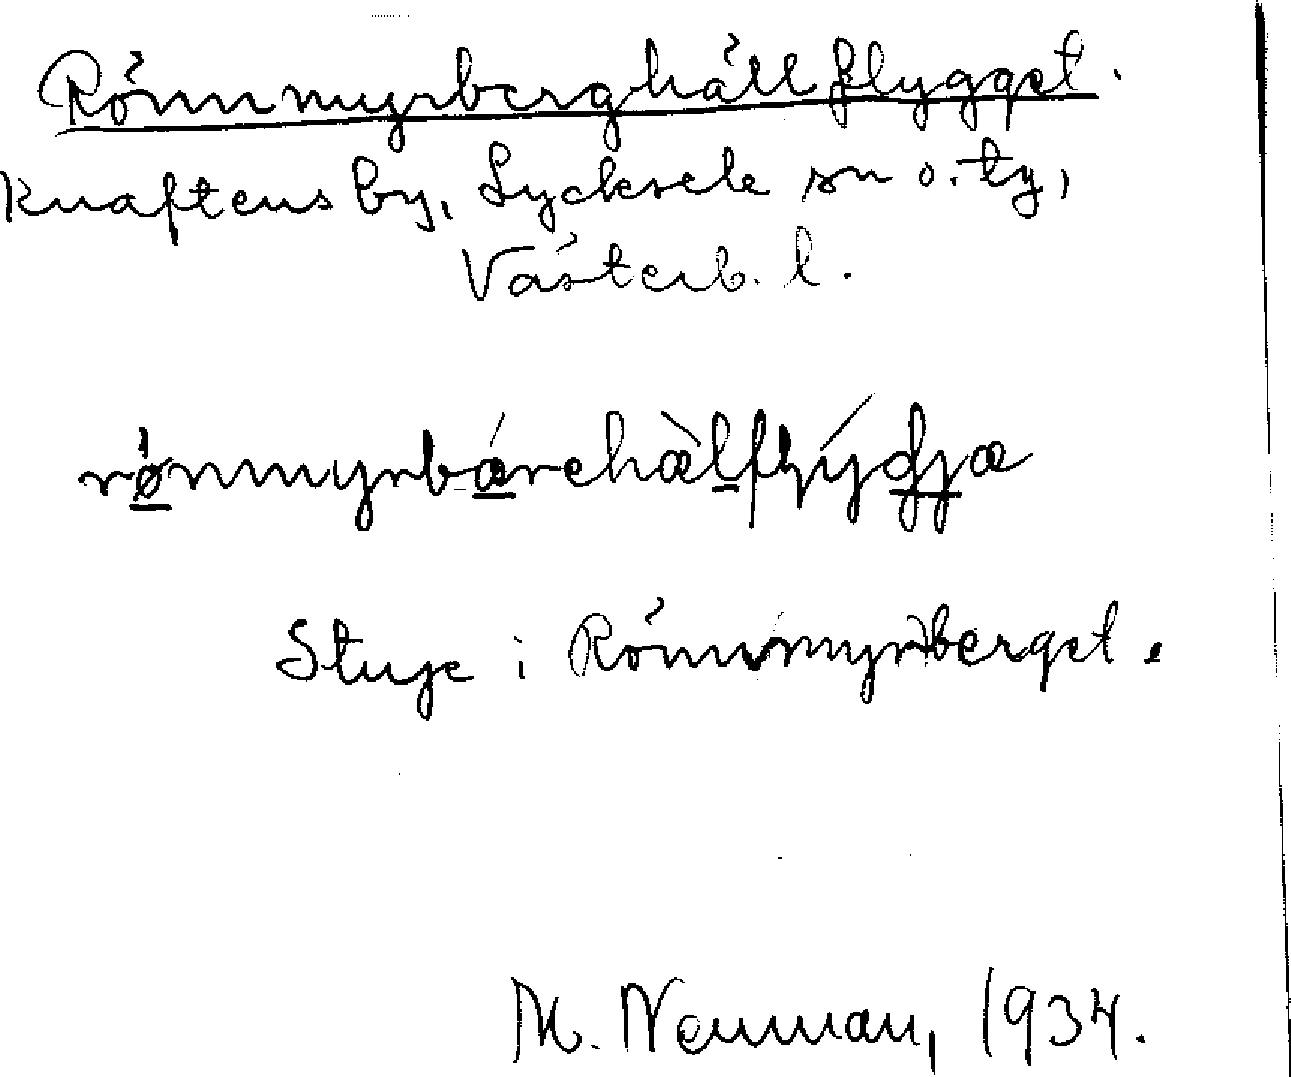 Rönnmyrberghällflygget.
Knaftens by, Lycksele sn o. tg,
Västerb. l.
rø̀nmyrbǽrehæ̀lflýdjæ
Stuge i Rönnmyrberget.
M. Neuman, 1934.